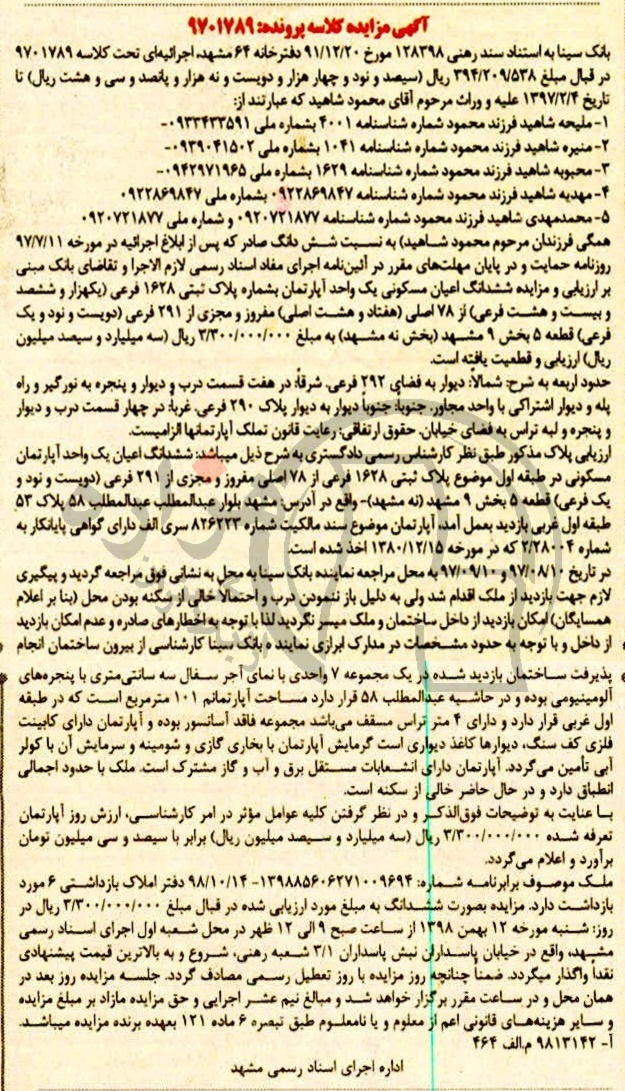 آگهی مزایده کلاسه پرونده: ۹۷۰۱۷۸۹
بانک سینا به استناد سند رهنی ۱۲۸۳۹۸ مورخ ۹۱/۱۲/۲۰ دفترخانه ۶۴ مشهد، اجرائیه‌ای تحت کلاسه ۹۷۰۱۷۸۹
در قبال مبلغ ۳۹۴/۲۰۹/۵۳۸ ریال (سیصد و نود و چهار هزار و دویست و نه هزار و پانصد و سی و هشت ریال) تا
تاریخ ۱۳۹۷/۲/۴ علیه و وراث مرحوم آقای محمود شاهید که عبارتند از:
۱- ملیحه شاهید فرزند محمود شماره شناسنامه ۴۰۰۱ بشماره ملی ۰۹۳۳۴۳۳۵۹۱-
۲- منیره شاهید فرزند محمود شماره شناسنامه ۱۰۴۱ بشماره ملی ۰۹۳۹۰۴۱۵۰۲-
۳- محبوبه شاهید فرزند محمود شماره شناسنامه ۱۶۲۹ بشماره ملی ۰۹۴۲۹۷۱۹۶۵-
۴- مهدیه شاهید فرزند محمود شماره شناسنامه ۰۹۲۲۸۶۹۸۴۷ بشماره ملی ۰۹۲۲۸۶۹۸۴۷
۵- محمدمهدی شاهید فرزند محمود شماره شناسنامه ۰۹۲۰۷۲۱۸۷۷ و شماره ملی ۰۹۲۰۷۲۱۸۷۷
همگی فرزندان مرحوم محمود شاهید) به نسبت شش دانگ صادر که پس از ابلاغ اجرائیه در مورخه ۹۷/۷/۱۱
روزنامه حمایت و در پایان مهلت‌های مقرر در آئین‌نامه اجرای مفاد اسناد رسمی لازم الاجرا و تقاضای بانک مبنی
بر ارزیابی و مزایده ششدانگ اعیان مسکونی یک واحد آپارتمان بشماره پلاک ثبتی ۱۶۲۸ فرعی (یکهزار و ششصد
و بیست و هشت فرعی) از ۷۸ اصلی (هفتاد و هشت اصلی) مفروز و مجزی از ۲۹۱ فرعی (دویست و نود و یک
فرعی) قطعه ۵ بخش ۹ مشهد (بخش نه مشهد) به مبلغ ۳/۳۰۰/۰۰۰/۰۰۰ ریال (سه میلیارد و سیصد میلیون
ریال) ارزیابی و قطعیت یافته است.
حدود اربعه به شرح: شمالاً: دیوار به فضای ۲۹۲ فرعی. شرقاً: در هفت قسمت درب و دیوار و پنجره به نورگیر و راه
پله و دیوار اشتراکی با واحد مجاور. جنوباً: جنوباً دیوار به دیوار پلاک ۲۹۰ فرعی. غرباً: در چهار قسمت درب و دیوار
و پنجره و لبه تراس به فضای خیابان. حقوق ارتفاقی: رعایت قانون تملک آپارتمانها الزامیست.
ارزیابی پلاک مذکور طبق نظر کارشناس رسمی دادگستری به شرح ذیل میباشد: ششدانگ اعیان یک واحد آپارتمان
مسکونی در طبقه اول موضوع پلاک ثبتی ۱۶۲۸ فرعی از ۷۸ اصلی مفروز و مجزی از ۲۹۱ فرعی (دویست و نود و
یک فرعی) قطعه ۵ بخش ۹ مشهد (نه مشهد)- واقع در آدرس: مشهد بلوار عبدالمطلب عبدالمطلب ۵۸ پلاک ۵۳
طبقه اول غربی بازدید بعمل آمد، آپارتمان موضوع سند مالکیت شماره ۸۲۶۲۲۳ سری الف دارای گواهی پایانکار به
شماره ۲/۲۸۰۰۴ که در مورخه ۱۳۸۰/۱۲/۱۵ اخذ شده است.
در تاریخ ۹۷/۰۸/۱۰ و ۹۷/۰۹/۱۰ به محل مراجعه نماینده بانک سینا به محل به نشانی فوق مراجعه گردید و پیگیری
لازم جهت بازدید از ملک اقدام شد ولی به دلیل باز ننمودن درب و احتمالاً خالی از سکنه بودن محل (بنا بر اعلام
همسایگان) امکان بازدید از داخل ساختمان و ملک میسر نگردید لذا با توجه به اخطارهای صادره و عدم امکان بازدید
از داخل و با توجه به حدود مشخصات در مدارک ابرازی نماینده بانک سینا کارشناسی از بیرون ساختمان انجام
پذیرفت ساختمان بازدید شده در یک مجموعه ۷ واحدی با نمای آجر سفال سه سانتی‌متری با پنجره‌های
آلومینیومی بوده و در حاشیه عبدالمطلب ۵۸ قرار دارد مساحت آپارتمانم ۱۰۱ مترمربع است که در طبقه
اول غربی قرار دارد و دارای ۴ متر تراس مسقف می‌باشد مجموعه فاقد آسانسور بوده و آپارتمان دارای کابینت
فلزی کف سنگ، دیوارها کاغذ دیواری است گرمایش آپارتمان با بخاری گازی و شومینه و سرمایش آن با کولر
آبی تأمین می‌گردد. آپارتمان دارای انشعابات مستقل برق و آب و گاز مشترک است. ملک با حدود اجمالی
انطباق دارد و در حال حاضر خالی از سکنه است.
بـا عنایت به توضیحات فوق‌الذکر و در نظر گرفتن کلیه عوامل مؤثر در امر کارشناسی، ارزش روز آپارتمان
تعرفه شده ۳/۳۰۰/۰۰۰/۰۰۰ ریال (سه میلیارد و سیصد میلیون ریال) برابر با سیصد و سی میلیون تومان
برآورد و اعلام می‌گردد.
ملک موصوف برابرنامه شماره: ۱۳۹۸۸۵۶۰۶۲۷۱۰۰۹۶۹۴- ۹۸/۱۰/۱۴ دفتر املاک بازداشتی ۶ مورد
بازداشت دارد. مزایده بصورت ششدانگ به مبلغ مورد ارزیابی شده در قبال مبلغ ۳/۳۰۰/۰۰۰/۰۰۰ ریال در
روز: شنبه مورخه ۱۲ بهمن ۱۳۹۸ از ساعت صبح ۹ الی ۱۲ ظهر در محل شعبه اول اجرای اسناد رسمی
مشهد، واقع در خیابان پاسداران نبش پاسداران ۳/۱ شعبه رهنی، شروع و به بالاترین قیمت پیشنهادی
نقداً واگذار میگردد. ضمناً چنانچه روز مزایده با روز تعطیل رسمی مصادف گردد. جلسه مزایده روز بعد در
همان محل و در ساعت مقرر برگزار خواهد شد و مبالغ نیم عشر اجرایی و حق مزایده مازاد بر مبلغ مزایده
و سایر هزینه‌های قانونی اعم از معلوم و یا نامعلوم طبق تبصره ۶ ماده ۱۲۱ بعهده برنده مزایده میباشد.
آ- ۹۸۱۳۱۴۲ م.الف ۴۶۴
اداره اجرای اسناد رسمی مشهد